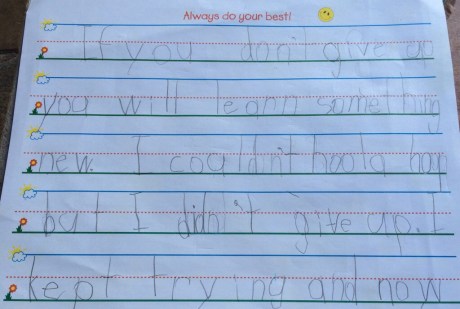 Always do your best!
If you don't give up
you will leann something
new. I couldn't hoola hoop
but I didn't give up. I
kept trying and now